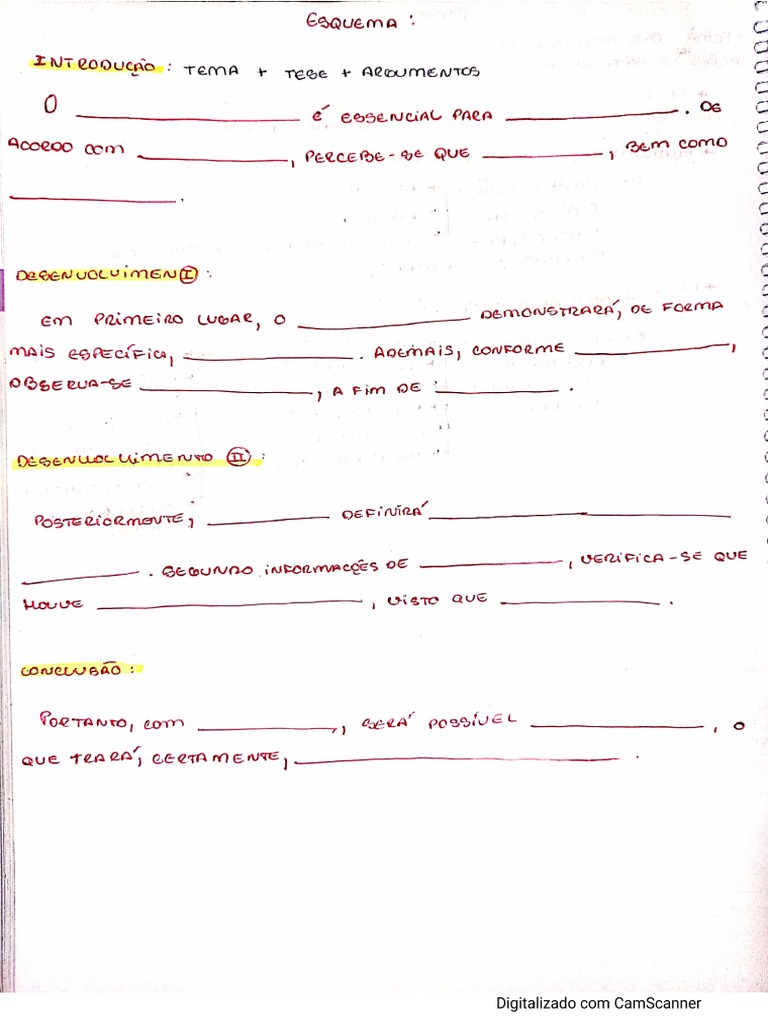 ESQUEMA:
INTRODUÇÃO: TEMA + TESE + ARGUMENTOS
O ____________ É ESSENCIAL PARA ____________. DE
ACORDO COM ____________, PERCEBE-SE QUE ____________, BEM COMO
____________.
DESENVOLVIMEN I:
EM PRIMEIRO LUGAR, O ____________ DEMONSTRARÁ, DE FORMA
MAIS ESPECÍFICA, ____________. ADEMAIS, CONFORME ____________,
OBSERVA-SE ____________, A FIM DE ____________.
DESENVOLVIMENTO II:
POSTERIORMENTE, ____________ DEFINIRÁ ____________
____________. SEGUNDO INFORMAÇÕES DE ____________, VERIFICA-SE QUE
HOUVE ____________, VISTO QUE ____________.
CONCLUSÃO:
PORTANTO, COM ____________, SERÁ POSSÍVEL ____________, O
QUE TRARÁ, CERTAMENTE, ____________.
Digitalizado com CamScanner